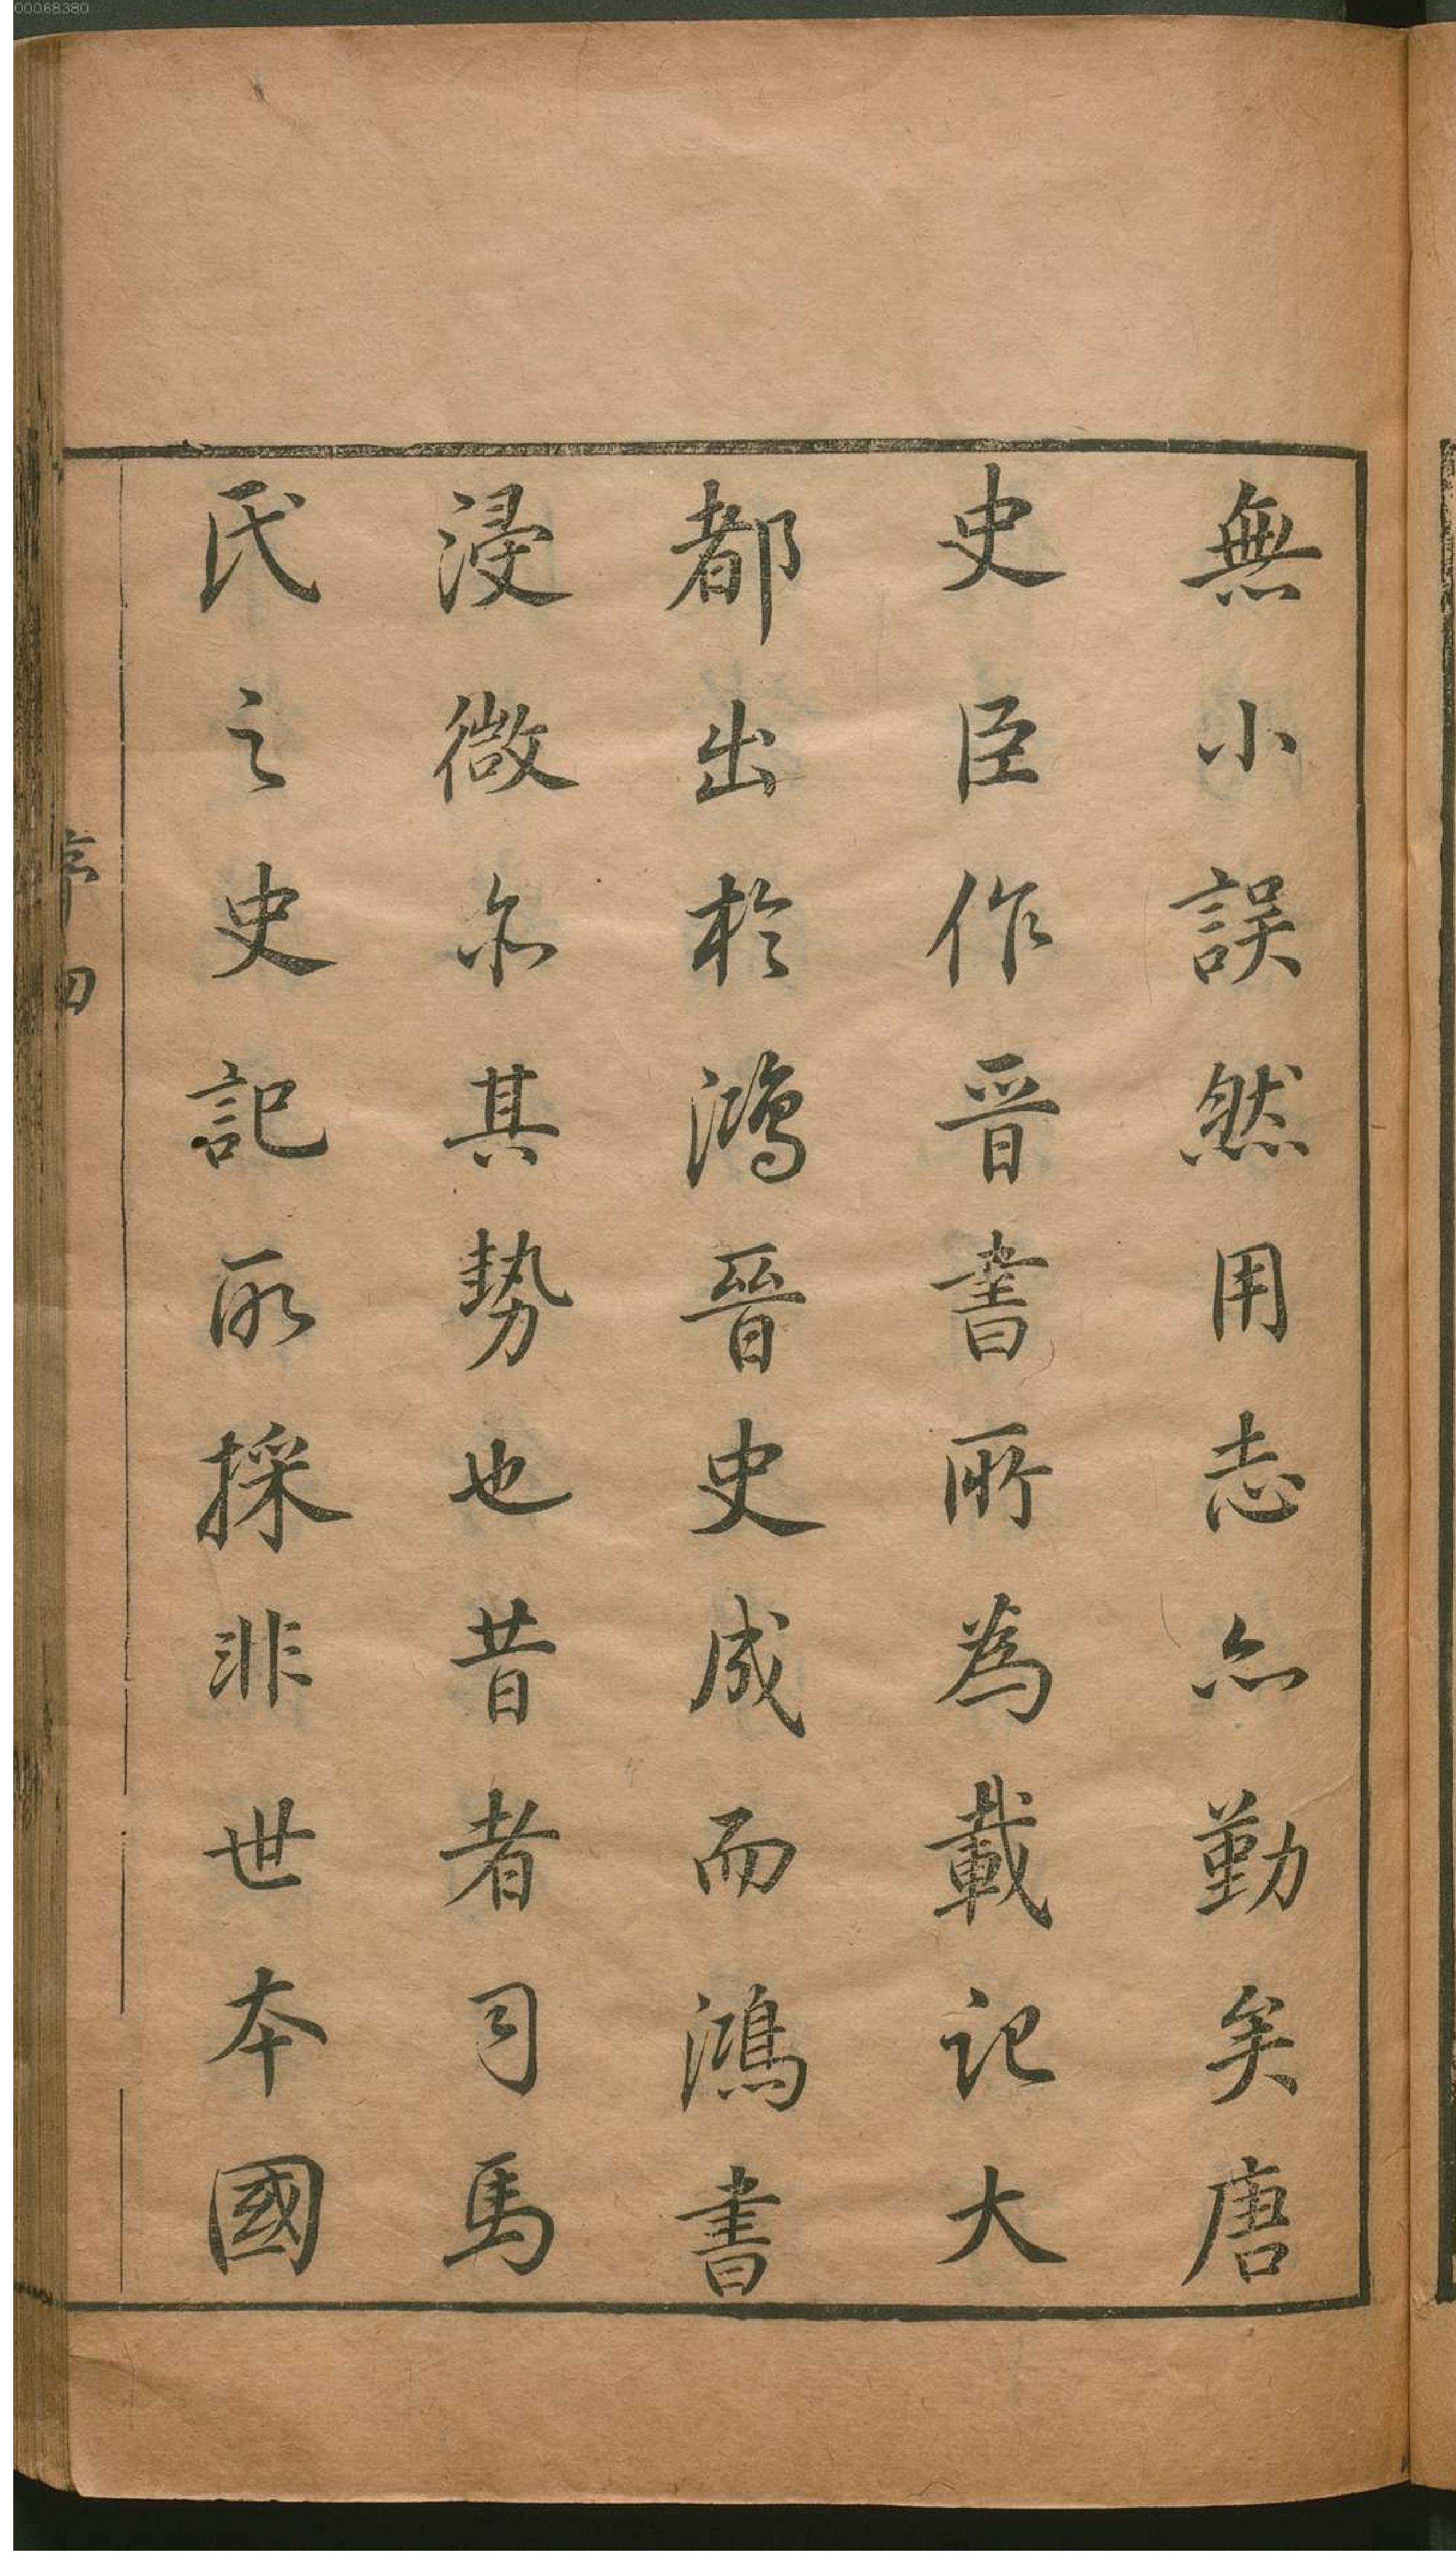 無小誤然用志亦勤矣唐
史臣作晉書所為載記大
都出於鴻晉史成而鴻書
浸微亦其勢也昔者司馬
氏之史記所採非世本國
序 四
00068380